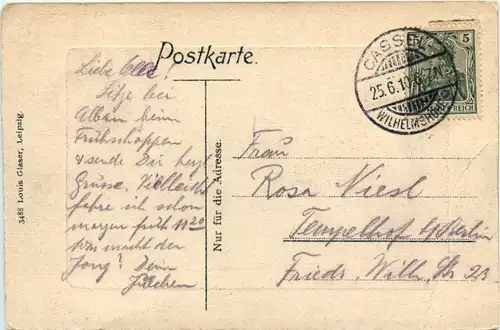 Postkarte.
Liebe Ella!
Sitze bei
Alban beim
Frühschoppen
& sende Dir herzl
Grüsse. Vielleicht
fahre ich schon
morgen früh 11 20
Was macht der
Jong? Dein
Julchen
3488 Louis Glaser, Leipzig.
Nur für die Adresse.
CASSEL
25.6.10. 6-7 N
WILHELMSHÖHE
5
REICH
Frau
Rosa Niesl
Tempelhof b/Berlin
Friedr. Wilh. Str 23